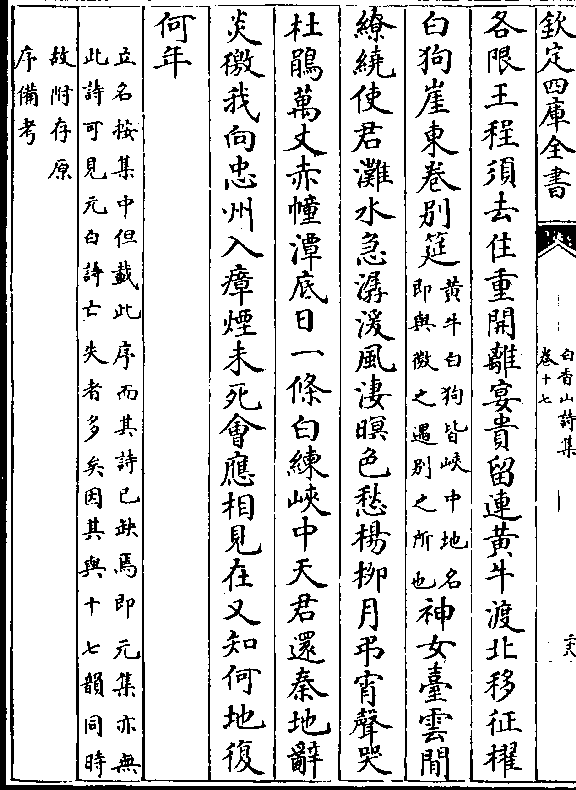 欽定四庫全書
白香山詩集
卷十七
各限王程須去住重開離宴貴留連黃牛渡北移征櫂
白狗崖東卷別筵
黃牛白狗皆峽中地名
即與微之遇別之所也
神女臺雲間
繚繞使君灘水急潺湲風淒暝色愁楊柳月弔宵聲哭
杜鵑萬丈赤幢潭底日一條白練峽中天君還秦地辭
炎徼我向忠州入瘴煙未死會應相見在又知何地復
何年
立名按集中但載此序而其詩已缺焉即元集亦無
此詩可見元白詩亡失者多矣因其與十七韻同時
故附存原
序備考